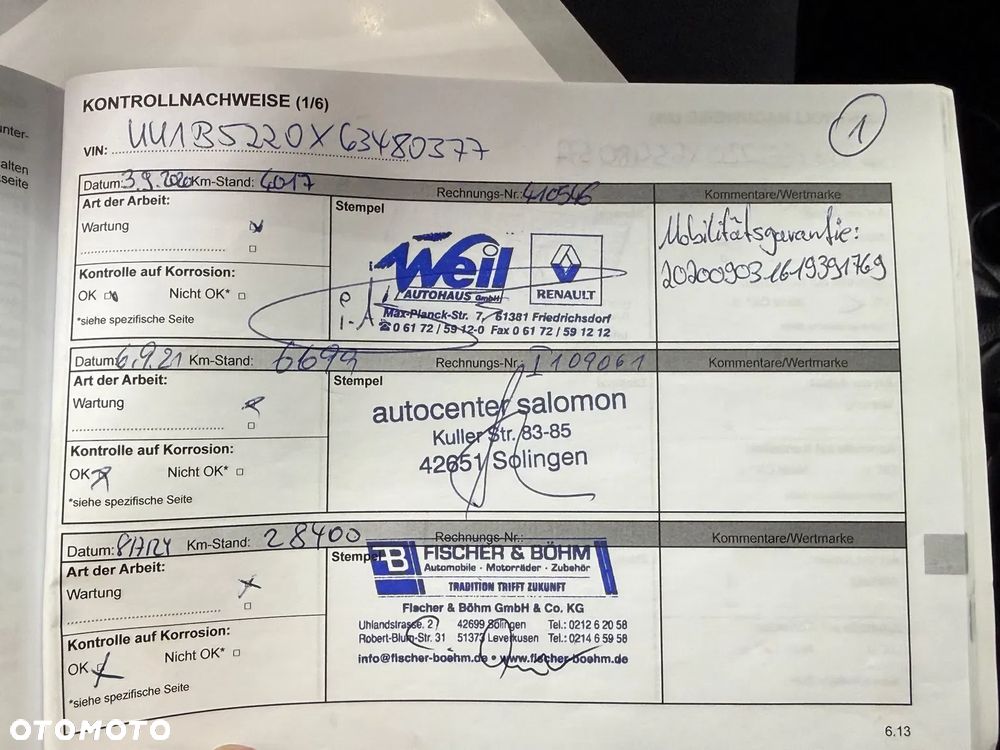 unter-
alten
seite
KONTROLLNACHWEISE (1/6)
1
VIN: UU1B5220X63480377
Datum: 3.9.2020 Km-Stand: 4017 Rechnungs-Nr.: 410546 Kommentare/Wertmarke
Art der Arbeit: Stempel
Wartung
Mobilitätsgarantie:
202009031619391769
Weil
AUTOHAUS GmbH RENAULT
Kontrolle auf Korrosion:
OK Nicht OK*
*siehe spezifische Seite
Max-Planck-Str. 7, 61381 Friedrichsdorf
☎ 0 61 72 / 59 12-0 Fax 0 61 72 / 59 12 12
Datum: 6.9.21 Km-Stand: 6699 Rechnungs-Nr.: I109061 Kommentare/Wertmarke
Art der Arbeit: Stempel
Wartung
autocenter salomon
Kuller Str. 83-85
42651 Solingen
Kontrolle auf Korrosion:
OK Nicht OK*
*siehe spezifische Seite
Datum: Km-Stand: 28400 Rechnungs-Nr.: Kommentare/Wertmarke
Art der Arbeit: Stempel
Wartung
B FISCHER & BÖHM
Automobile · Motorräder · Zubehör
TRADITION TRIFFT ZUKUNFT
Fischer & Böhm GmbH & Co. KG
Uhlandstrasse 42699 Solingen Tel.: 0212 6 20 58
Robert-Blum-Str. 31 51373 Leverkusen Tel.: 0214 6 59 58
info@fischer-boehm.de • www.fischer-boehm.de
Kontrolle auf Korrosion:
OK Nicht OK*
*siehe spezifische Seite
OTOMOTO
6.13